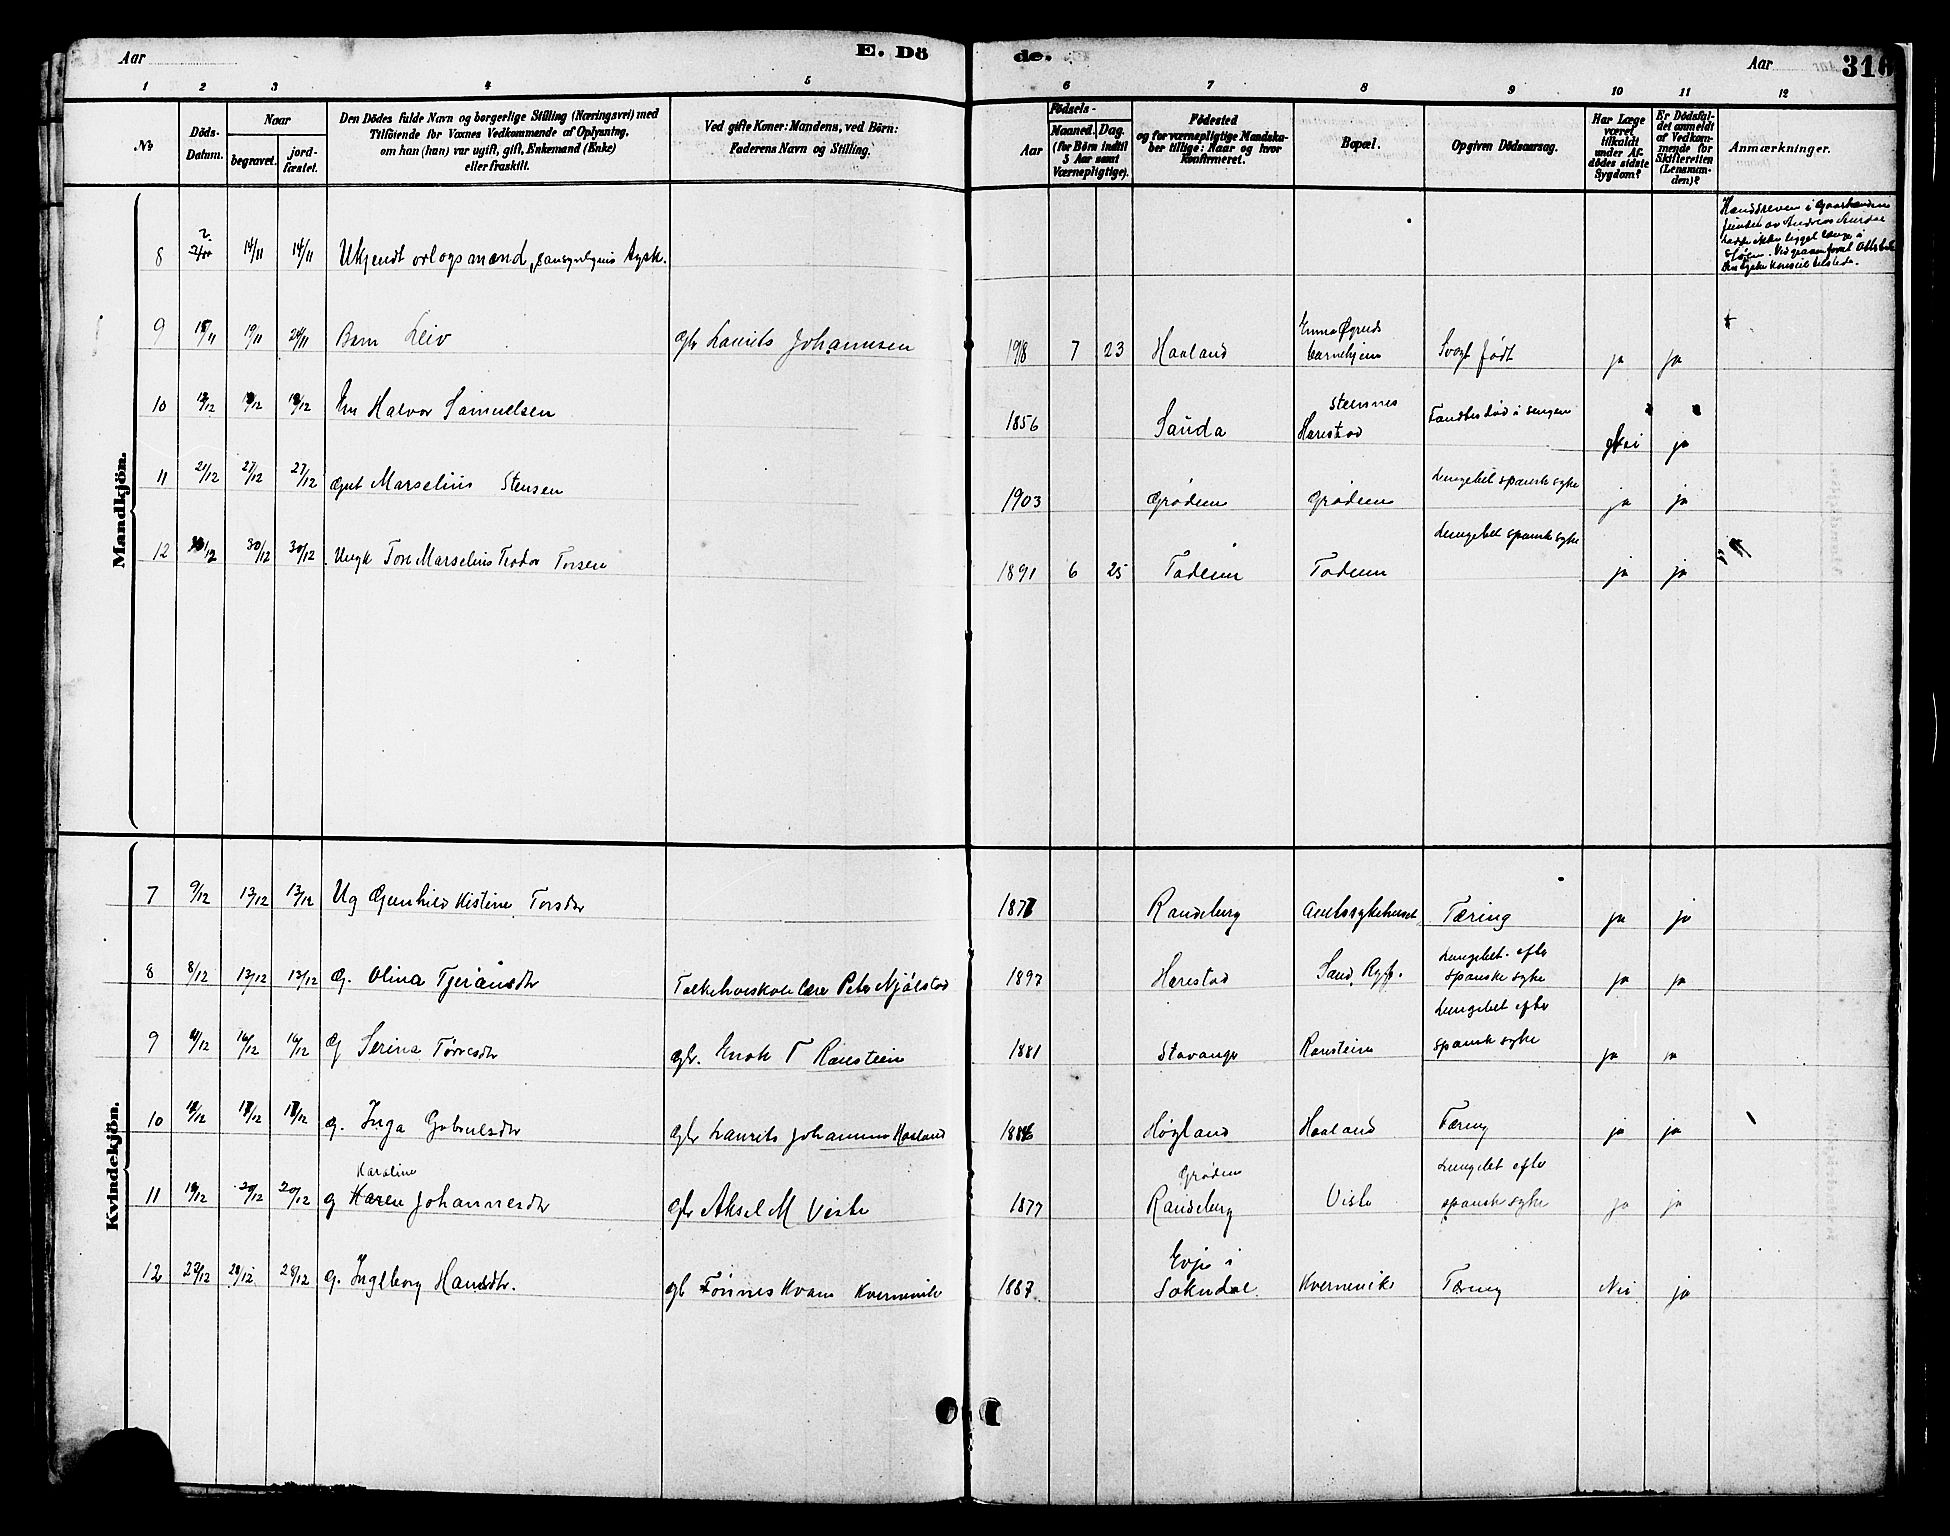 Aar
E. Dö
de.
Aar
316
1 2 3 4 5 6 7 8 9 10 11 12
No
Döds-Datum.
Naar
begravet.
jord-fæstet.
Den Dödes fulde Navn og borgerlige Stilling (Næringsvei) med
Tilföiende for Voxnes Vedkommende af Oplysning,
om han (hun) var ugift, gift, Enkemand (Enke)
eller fraskilt.
Ved gifte Koner: Mandens, ved Börn:
Faderens Navn og Stilling.
Aar
Födsels-
Maaned. Dag.
(for Börn indtil
5 Aar samt
Værnepligtige).
Födested
og for værnepligtige Mandska-
ber tillige: Naar og hvor
Konfirmeret.
Bopæl.
Opgiven Dödsaarsag.
Har Læge
været
tilkaldt
under Af-
dödes sidste
Sygdom?
Er Dödsfal-
det anmeldt
af Vedkom-
mende for
Skifteretten
(Lensman-
den)?
Anmærkninger.
Mandkjön.
8 14/11 14/11 Ukjendt orlogsmand, sansynligvis tysk.
9 19/11 Barn Leiv Gbr Laurits Johannesen 1918 7 23 Haaland Svagt født ja ja
10 Halvor Samuelsen 1856 Sauda Stensnes Harestad Fundet død i sengen nei ja
11 21/12 27/12 27/12 Marselius Stensen 1903 Grødem Grødem Lungebet spansk syke ja ja
12 30/12 30/12 Ungk Tore Marselius Teodor Torsen 1891 6 25 Todeim Todeim Lungebet spansk syke ja ja
Kvindekjön.
7 9/12 13/12 13/12 Ug Gunhild Kistine Torsdtr Randeberg Amtssykehuset Tæring ja ja
8 8/12 13/12 13/12 G. Olina Tjerandsdtr Folkehøiskolelærer Peter Njålstad 1897 Harestad Sand Ryf. Lungebet. efter spanske syke ja ja
9 16/12 16/12 G Serina Tørresdtr Gbr. Enok T Raustein 1881 Stavanger Raustein Lungebet efter spansk syke ja ja
10 G. Inga Gabrielsdtr Gbr Laurits Johannesen Haaland Høgland Haaland Tæring ja ja
11 20/12 20/12 G Karen Karoline Johannesdtr Gbr Aksel M Viste 1877 Grødem Randeberg Viste Lungebet efter spansk syke ja ja
12 22/12 28/12 28/12 G. Ingeborg Hansdtr. Gb Tønnes Kvans Kvernevik 1887 Evje i Sokndal Kvernevik Tæring Nei ja